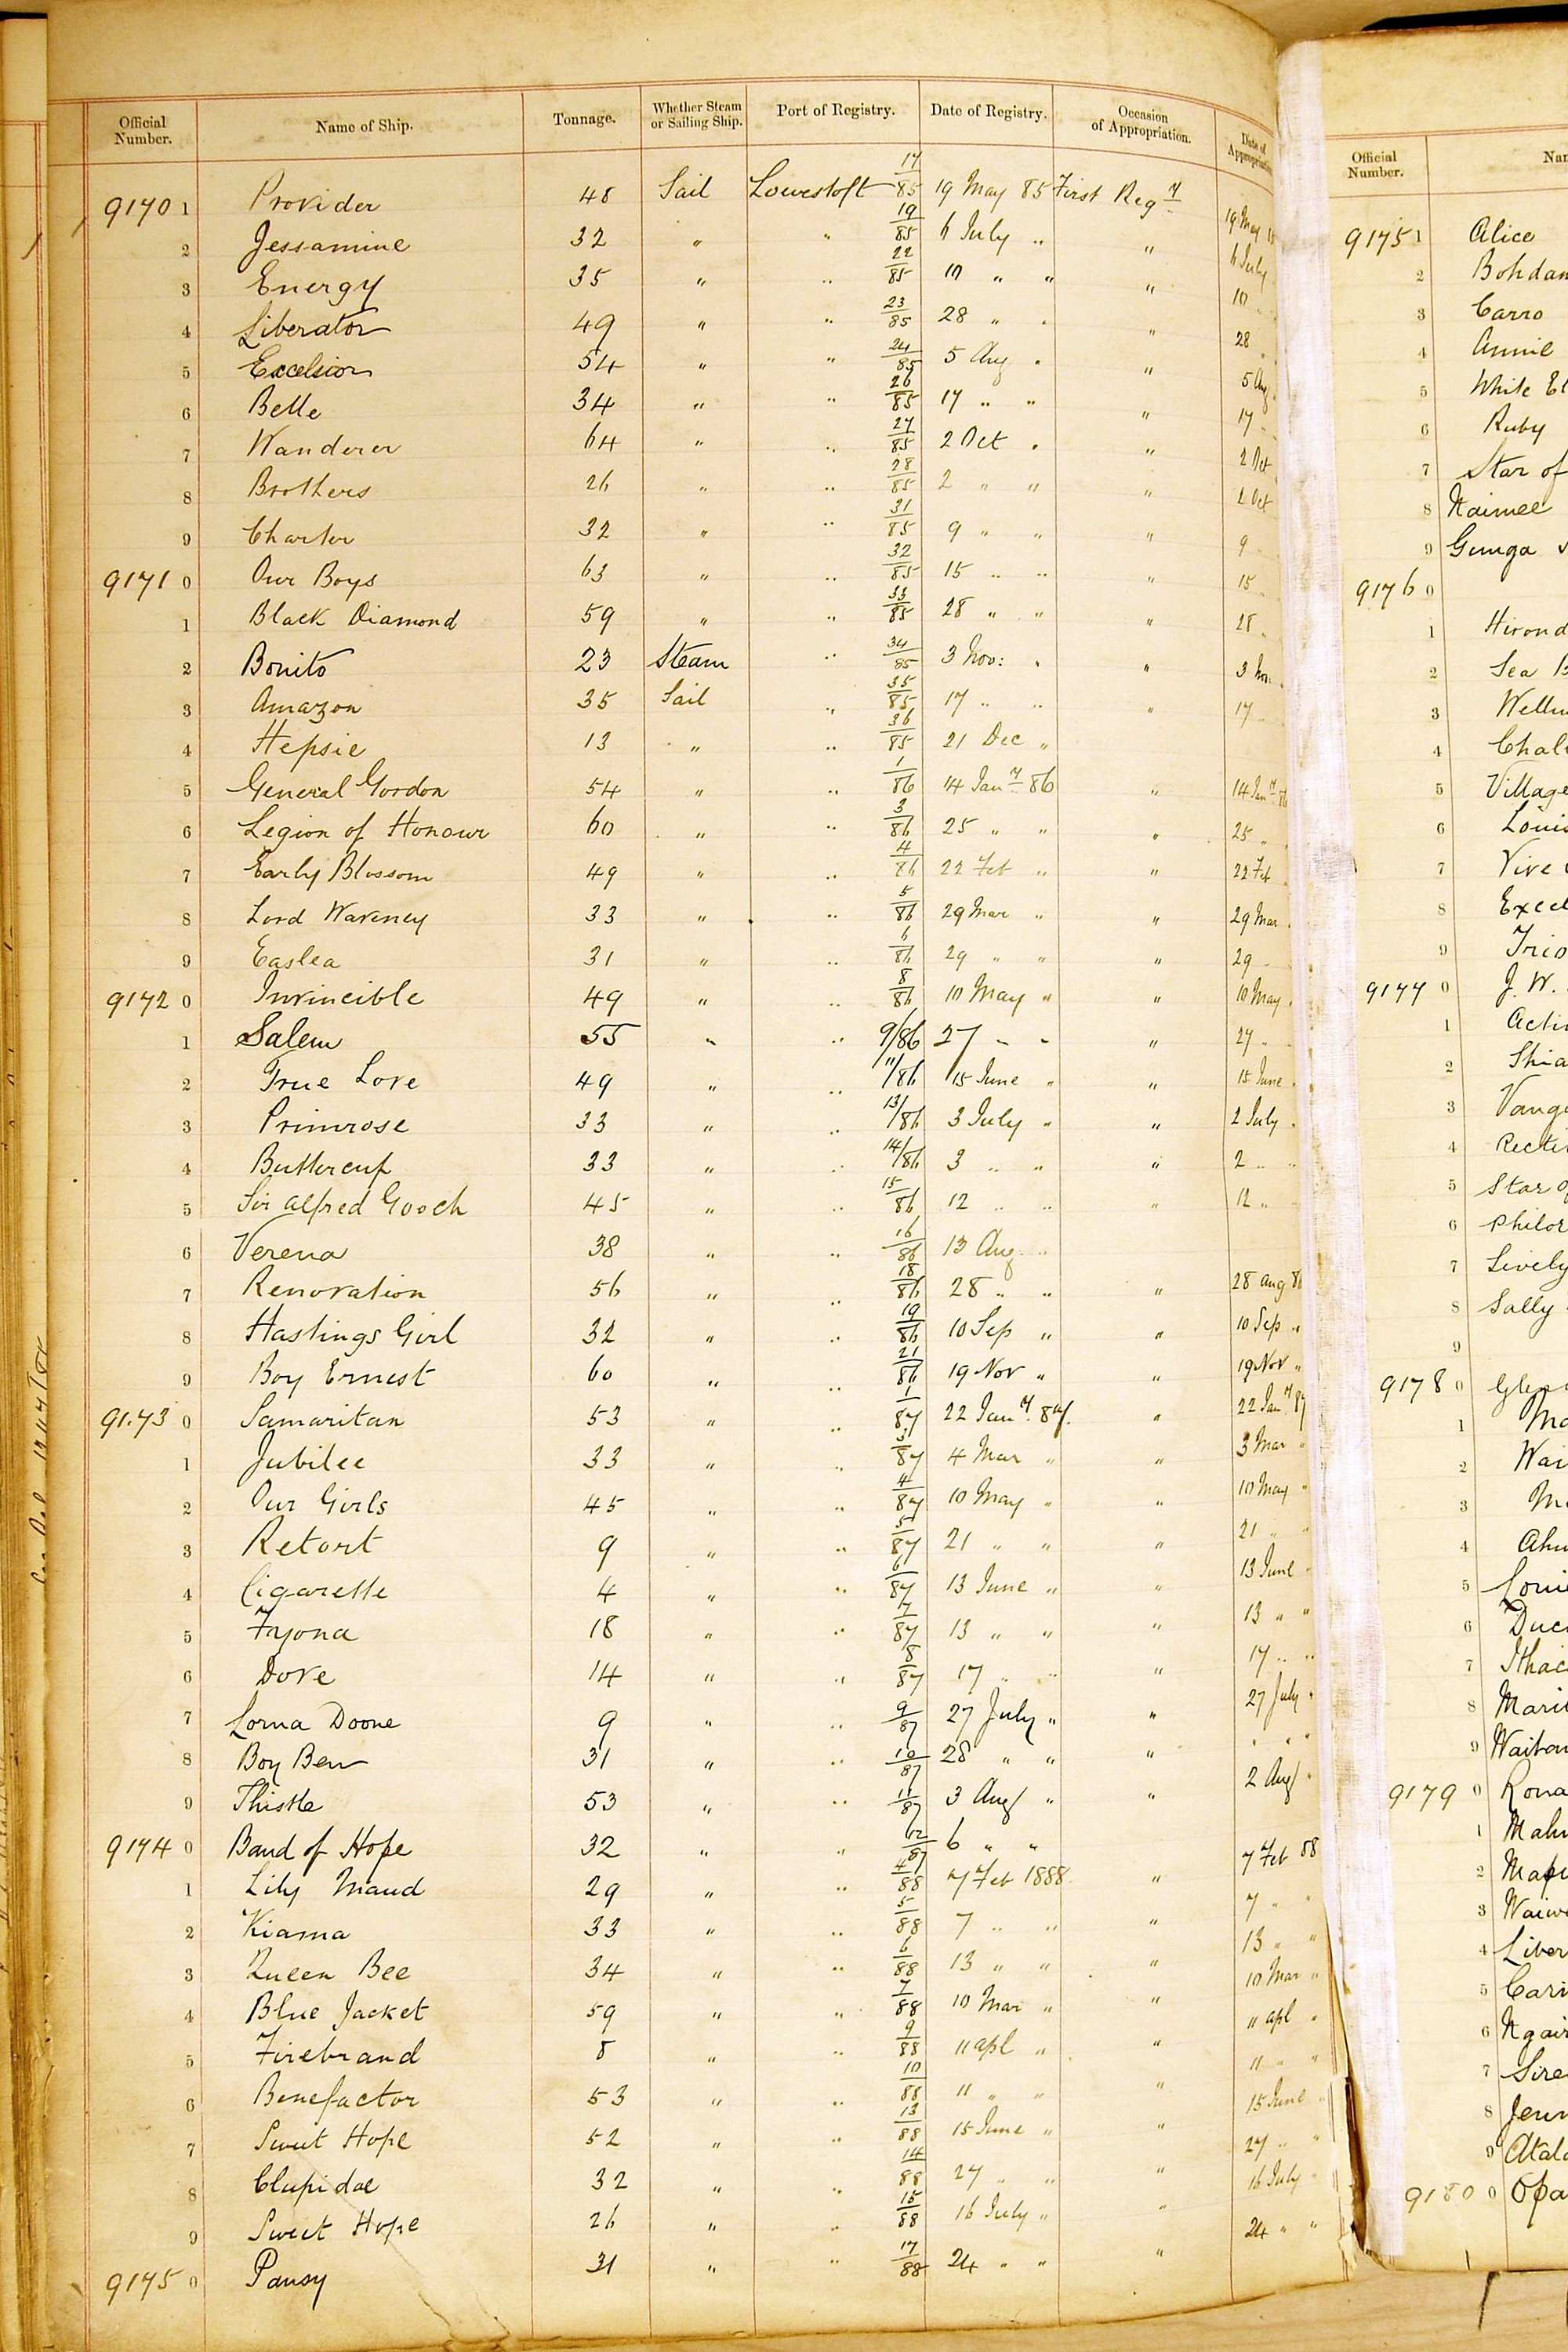 Official Number. Name of Ship. Tonnage. Whether Steam or Sailing Ship. Port of Registry. Date of Registry. Occasion of Appropriation. Date of Appropriation
91701 Provider 48 Sail Lowestoft 17/85 19 May 85 First Regy 19 May
2 Jessamine 32 " " 19/85 6 July " " 6 July
3 Energy 35 " " 22/85 10 " " " 10
4 Liberator 49 " " 23/85 28 " " " 28
5 Excelsior 54 " " 24/85 5 Aug " " 5 Aug
6 Belle 34 " " 26/85 17 " " " 17 "
7 Wanderer 64 " " 27/85 2 Oct " " 2 Oct
8 Brothers 26 " " 28/85 2 " " " 2 Oct
9 Charter 32 " " 31/85 9 " " " 9 "
91710 Our Boys 63 " " 32/85 15 " " " 15 "
1 Black Diamond 59 " " 33/85 28 " " " 28 "
2 Bonito 23 Steam " 34/85 3 Nov: " " 3 Nov
3 Amazon 35 Sail " 35/85 17 " " " 17 "
4 Hepsie 13 " " 36/85 21 Dec "
5 General Gordon 54 " " 1/86 14 Jany 86 " 14 Jany 86
6 Legion of Honour 60 " " 3/86 25 " " " 25 "
7 Early Blossom 49 " " 4/86 22 Feb " " 22 Feb
8 Lord Waveney 33 " " 5/86 29 Mar " " 29 Mar "
9 Easlea 31 " " 6/86 29 " " " 29 "
91720 Invincible 49 " " 8/86 10 May " " 10 May "
1 Salem 55 " " 9/86 27 " " " 27 "
2 True Love 49 " " 11/86 15 June " " 15 June "
3 Primrose 33 " " 13/86 3 July " " 2 July "
4 Buttercup 33 " " 14/86 3 " " " 2 " "
5 Sir Alfred Gooch 45 " " 15/86 12 " " " 12 "
6 Verena 38 " " 16/86 13 Aug "
7 Renovation 56 " " 18/86 28 " " " 28 Aug 86
8 Hastings Girl 32 " " 19/86 10 Sep " " 10 Sep "
9 Boy Ernest 60 " " 21/86 19 Nov " " 19 Nov "
91730 Samaritan 53 " " 1/87 22 Jany. 87. " 22 Jany 87
1 Jubilee 33 " " 3/87 4 Mar " " 3 Mar "
2 Our Girls 45 " " 4/87 10 May " " 10 May "
3 Retort 9 " " 5/87 21 " " " 21 " "
4 Cigarette 4 " " 6/87 13 June " " 13 June "
5 Fyona 18 " " 7/87 13 " " " 13 " "
6 Dove 14 " " 8/87 17 " " " 17 " "
7 Lorna Doone 9 " " 9/87 27 July " " 27 July "
8 Boy Ben 31 " " 10/87 28 " " " " " "
9 Thistle 53 " " 11/87 3 Aug/ " " 2 Aug/ "
91740 Band of Hope 32 " " 12/87 6 " "
1 Lily Maud 29 " " 4/88 7 Feb 1888. " 7 Feb 88
2 Kiama 33 " " 5/88 7 " " " 7 " "
3 Queen Bee 34 " " 6/88 13 " " " 13 " "
4 Blue Jacket 59 " " 7/88 10 Mar " " 10 Mar "
5 Firebrand 8 " " 9/88 11 Apl " " 11 Apl "
6 Benefactor 53 " " 10/88 11 " " " 11 " "
7 Sweet Hope 52 " " 13/88 15 June " " 15 June "
8 Clupidae 32 " " 14/88 27 " " " 27 " "
9 Sweet Hope 26 " " 15/88 16 July " " 16 July "
91750 Pansy 31 " " 17/88 24 " " " 24 " "
Official Number.
91751 Alice
2 Bohdan
3 Carro
4 Annie
5 White El
6 Ruby
7 Star of
8 Naimee
9 Gunga
91760
1 Hirond
2 Sea B
3 Wellin
4 Chal
5 Village
6 Louis
7 Vive
8 Excel
9 Trio
91770 J. W.
1 Acti
2 Shia
3 Vang
4 Recti
5 Star o
6 Philo
7 Lively
8 Sally
9
91780 Glen
1 Ma
2 Wai
3 M
4 Ahu
5 Loui
6 Duc
7 Ithac
8 Mari
9 Waitou
91790 Rona
1 Mahu
2 Mapu
3 Waiw
4 Liber
5 Cari
6 Ngair
7 Sire
8 Jenn
9 Atala
91800 Opa